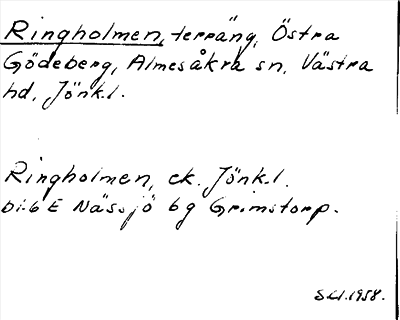 Ringholmen, terräng, Östra
Gödeberg, Almesåkra sn, Västra
hd, Jönk.l.
Ringholmen, ek. Jönk.l.
bl.6 E Nässjö bg Grimstorp.
1958.